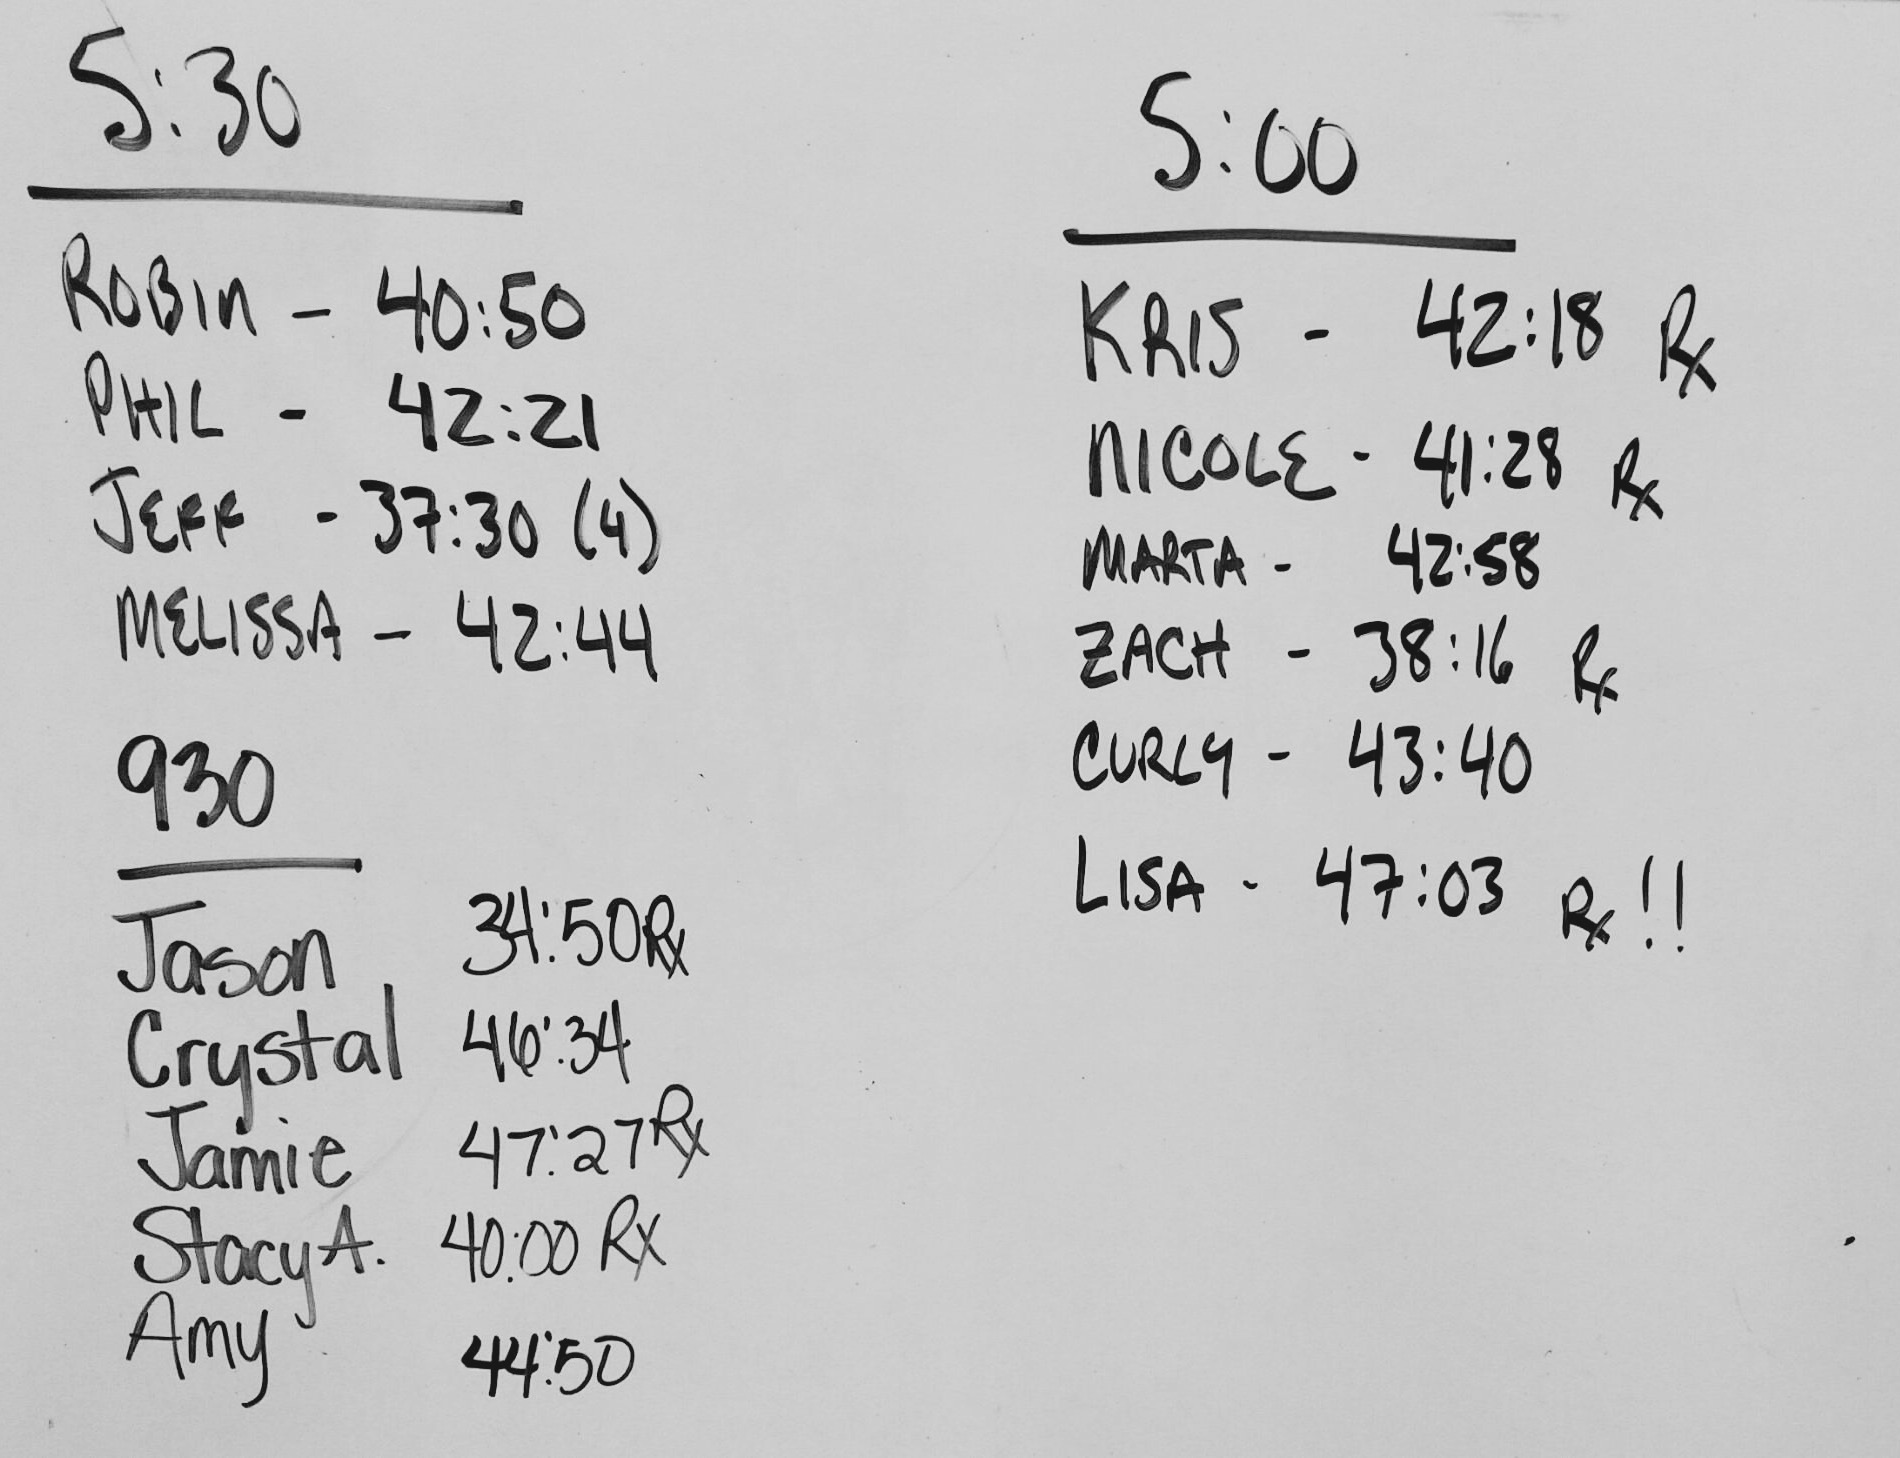 5:30
ROBIN - 40:50
PHIL - 42:21
JEFF - 37:30 (4)
MELISSA - 42:44
930
Jason 34:50 Rx
Crystal 46:34
Jamie 47:27 Rx
Stacy A. 40:00 Rx
Amy 44:50
5:00
KRIS - 42:18 Rx
NICOLE - 41:28 Rx
MARTA - 42:58
ZACH - 38:16 Rx
CURLY - 43:40
LISA - 47:03 Rx!!